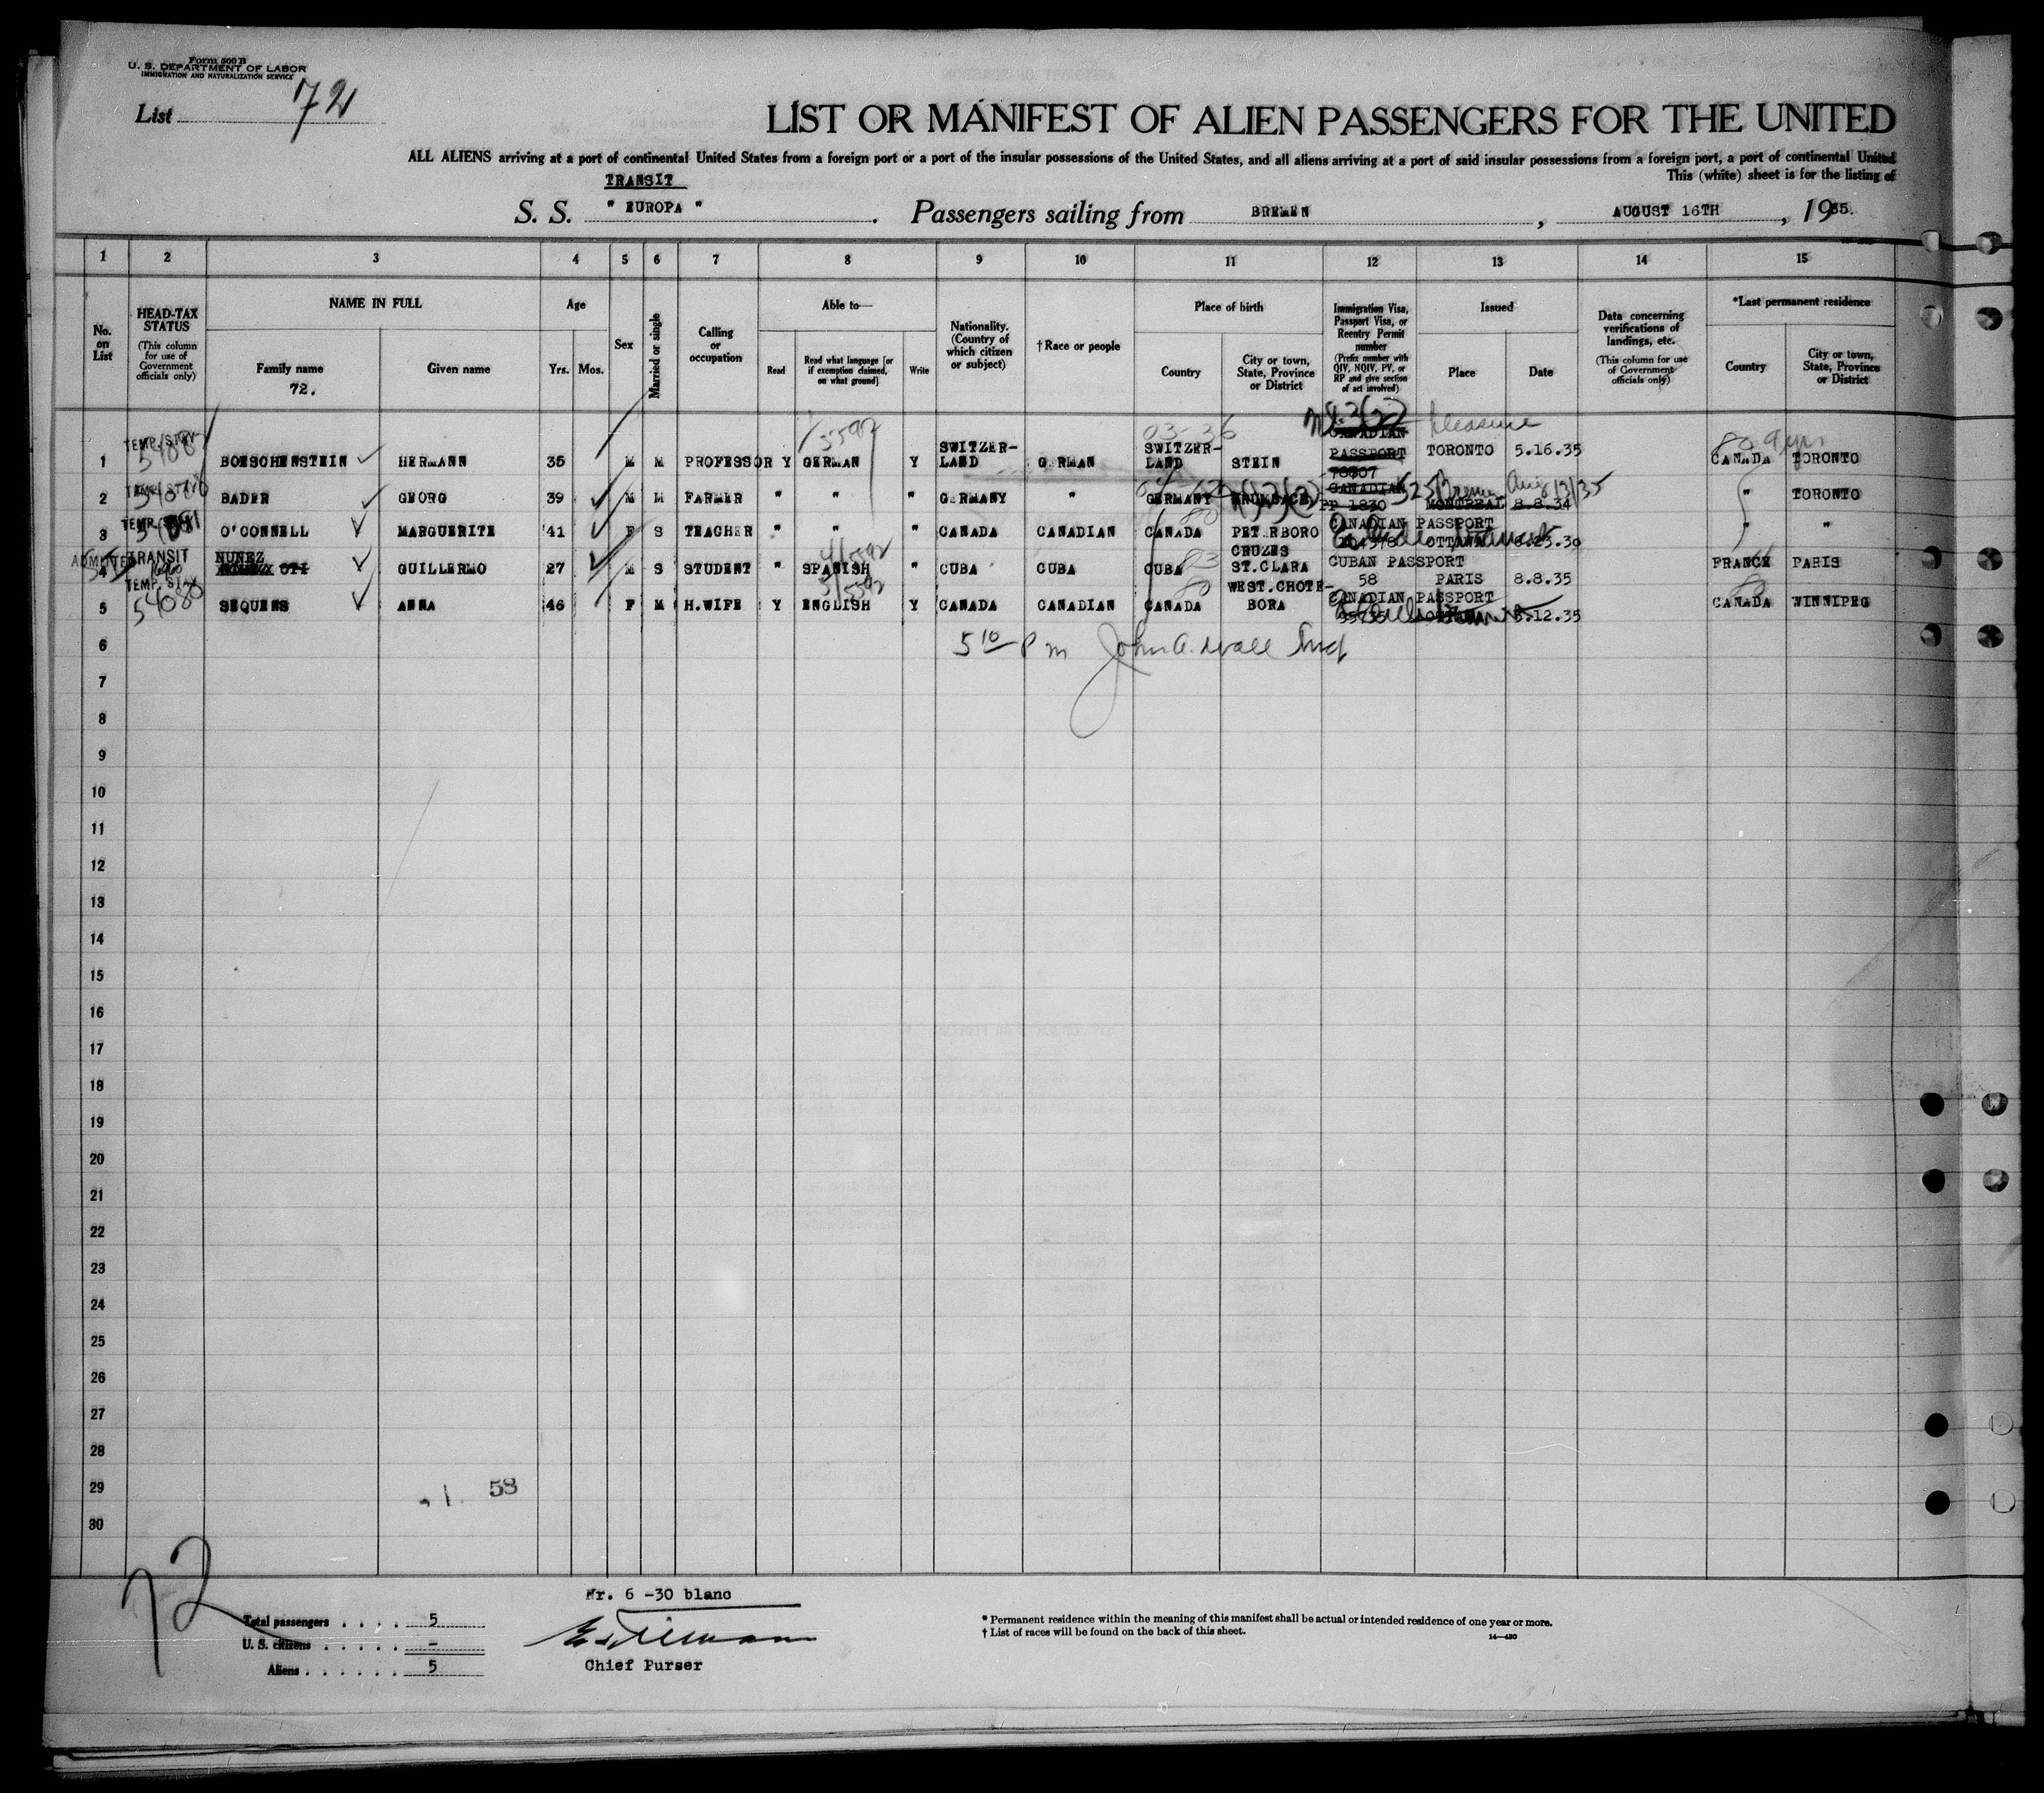 Form 500 B
U. S. DEPARTMENT OF LABOR
IMMIGRATION AND NATURALIZATION SERVICE
List 72
LIST OR MANIFEST OF ALIEN PASSENGERS FOR THE UNITED
ALL ALIENS arriving at a port of continental United States from a foreign port or a port of the insular possessions of the United States, and all aliens arriving at a port of said insular possessions from a foreign port, a port of continental United
This (white) sheet is for the listing of
TRANSIT
S. S. " EUROPA " . Passengers sailing from BREMEN , AUGUST 16TH , 1935.
1 2 3 4 5 6 7 8 9 10 11 12 13 14 15
No. on List
HEAD-TAX STATUS (This column for use of Government officials only)
NAME IN FULL
Family name
72.
Given name
Age
Yrs. Mos.
Sex
Married or single
Calling or occupation
Able to—
Read
Read what language [or if exemption claimed, on what ground]
Write
Nationality. (Country of which citizen or subject)
†Race or people
Place of birth
Country
City or town, State, Province or District
Immigration Visa, Passport Visa, or Reentry Permit number (Prefix number with QIV, NQIV, PV, or RP and give section of act involved)
Issued
Place
Date
Data concerning verifications of landings, etc. (This column for use of Government officials only)
*Last permanent residence
Country
City or town, State, Province or District
03-36 pleasure
1 TEMP. STAY BOESCHENSTEIN HERMANN 35 M M PROFESSOR Y GERMAN Y SWITZER-LAND GERMAN SWITZER-LAND STEIN CANADIAN PASSPORT 76807 TORONTO 5.16.35 CANADA TORONTO
2 BADER GEORG 39 M M FARMER " " " GERMANY " GERMANY CANADIAN PP 1830 MONTREAL 8.8.34 " TORONTO
3 TEMP. STAY O'CONNELL MARGUERITE 41 F S TEACHER " " " CANADA CANADIAN CANADA PETERBORO CANADIAN PASSPORT OTTAWA " "
4 ADMITTED TRANSIT NUNEZ OTI GUILLERMO 27 M S STUDENT " SPANISH " CUBA CUBA CUBA CRUZES ST.CLARA CUBAN PASSPORT 58 PARIS 8.8.35 FRANCE PARIS
5 TEMP. STAY 54080 SEQUENS ANNA 46 F M H.WIFE Y ENGLISH Y CANADA CANADIAN CANADA WEST.CHOTE-BORA CANADIAN PASSPORT OTTAWA CANADA WINNIPEG
6 5 10 P m John A. Wall Insp
7
8
9
10
11
12
13
14
15
16
17
18
19
20
21
22
23
24
25
26
27
28
29 58
30
72
Nr. 6 -30 blanc
Total passengers . . . . 5
U. S. citizens . . . . . –
Aliens . . . . . . 5
Chief Purser
* Permanent residence within the meaning of this manifest shall be actual or intended residence of one year or more.
† List of races will be found on the back of this sheet.
14—430